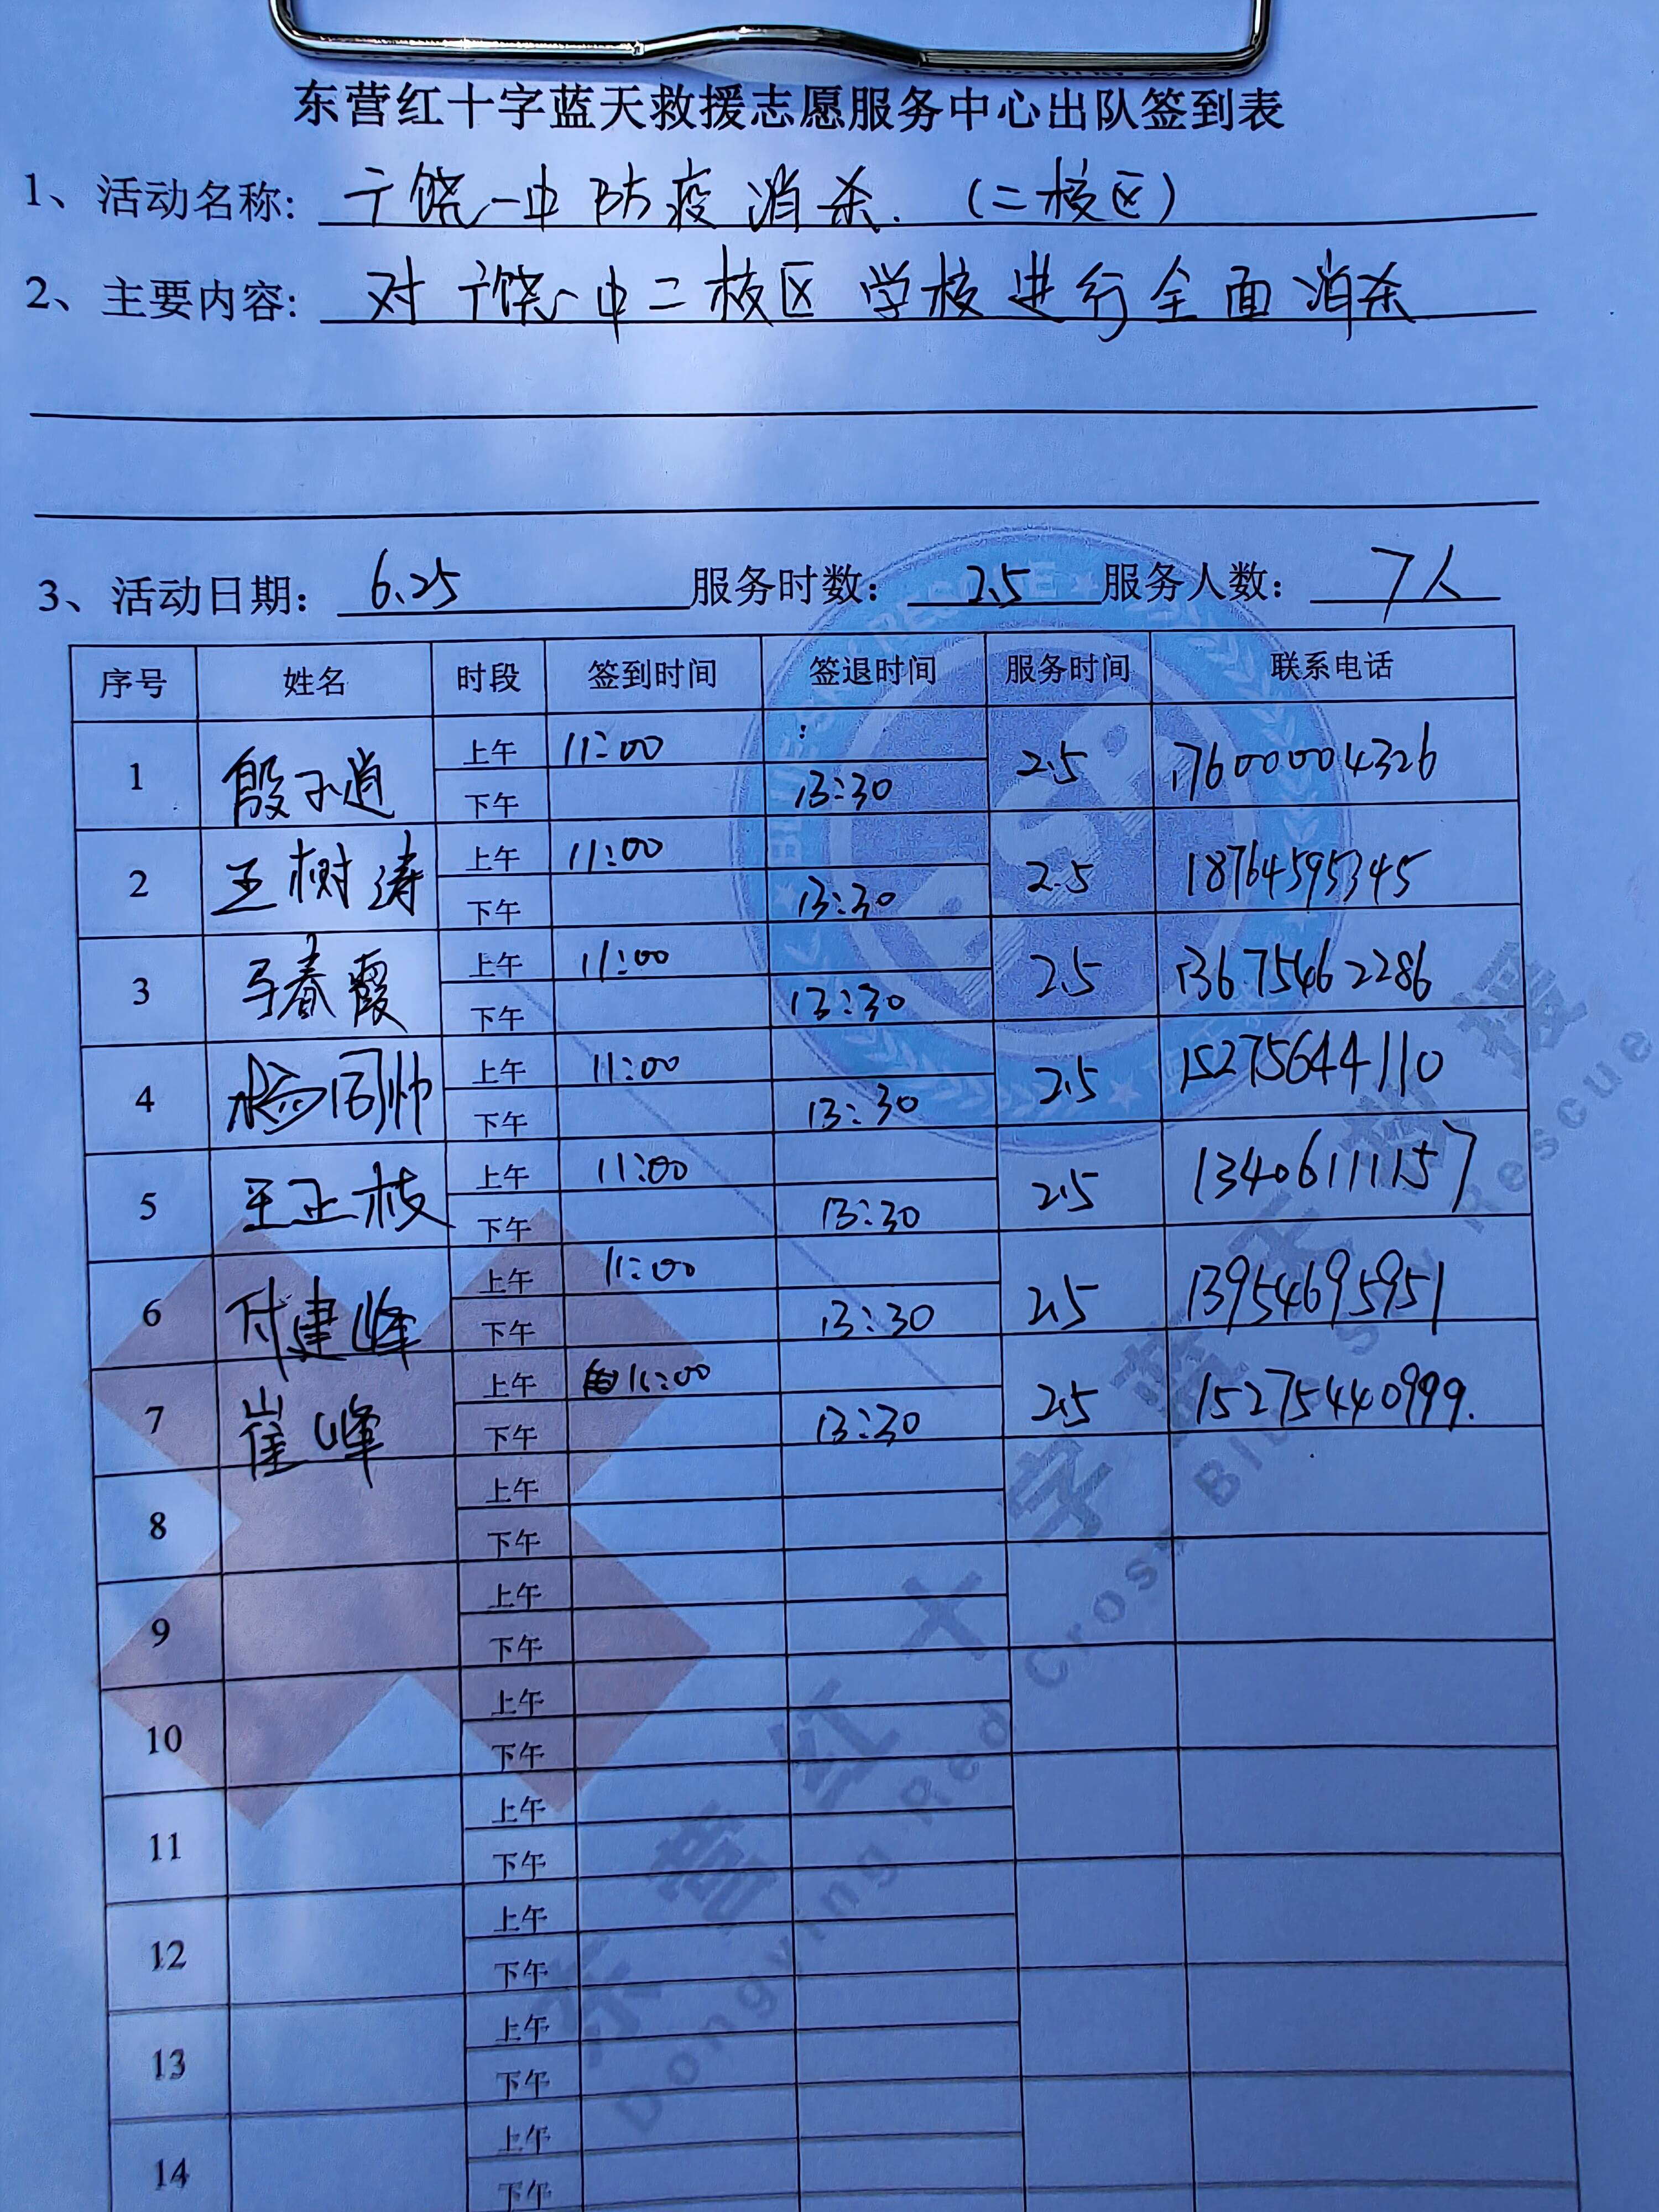 东营红十字蓝天救援志愿服务中心出队签到表
1、活动名称: 广饶一中防疫消杀.（二校区）
2、主要内容: 对广饶一中二校区学校进行全面消杀
3、活动日期: 6.25 服务时数: 2.5 服务人数: 7人
序号 姓名 时段 签到时间 签退时间 服务时间 联系电话
1 殷子道 上午 11:00 2.5 17600004326
下午 13:30
2 王树涛 上午 11:00 2.5 18764595345
下午 13:30
3 马春霞 上午 11:00 2.5 13675462286
下午 13:30
4 上午 11:00 2.5 15275644110
下午 13:30
5 王正枝 上午 11:00 2.5 13406111157
下午 13:30
6 付建峰 上午 11:00 2.5 13954695951
下午 13:30
7 崔峰 上午 11:00 2.5 15275440999.
下午 13:30
8 上午
下午
9 上午
下午
10 上午
下午
11 上午
下午
12 上午
下午
13 上午
下午
14 上午
下午
BSR
东营红十字蓝天救援
Dongying Red Cross Blue Sky Rescue